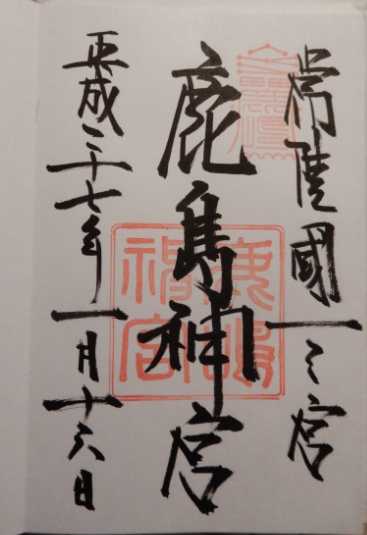 常陸國一之宮
鹿島神宮
平成二十七年一月十六日